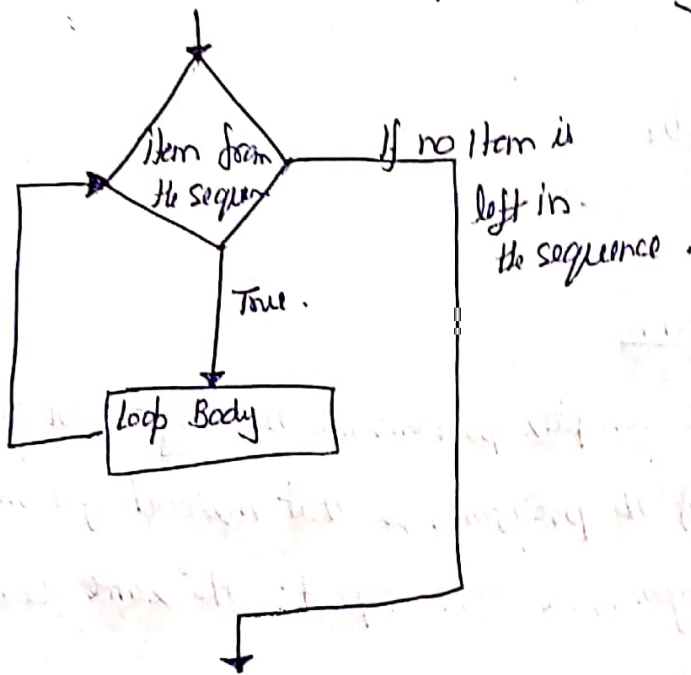 item from
the sequen
If no item is
left in
the sequence.
True.
Loop Body